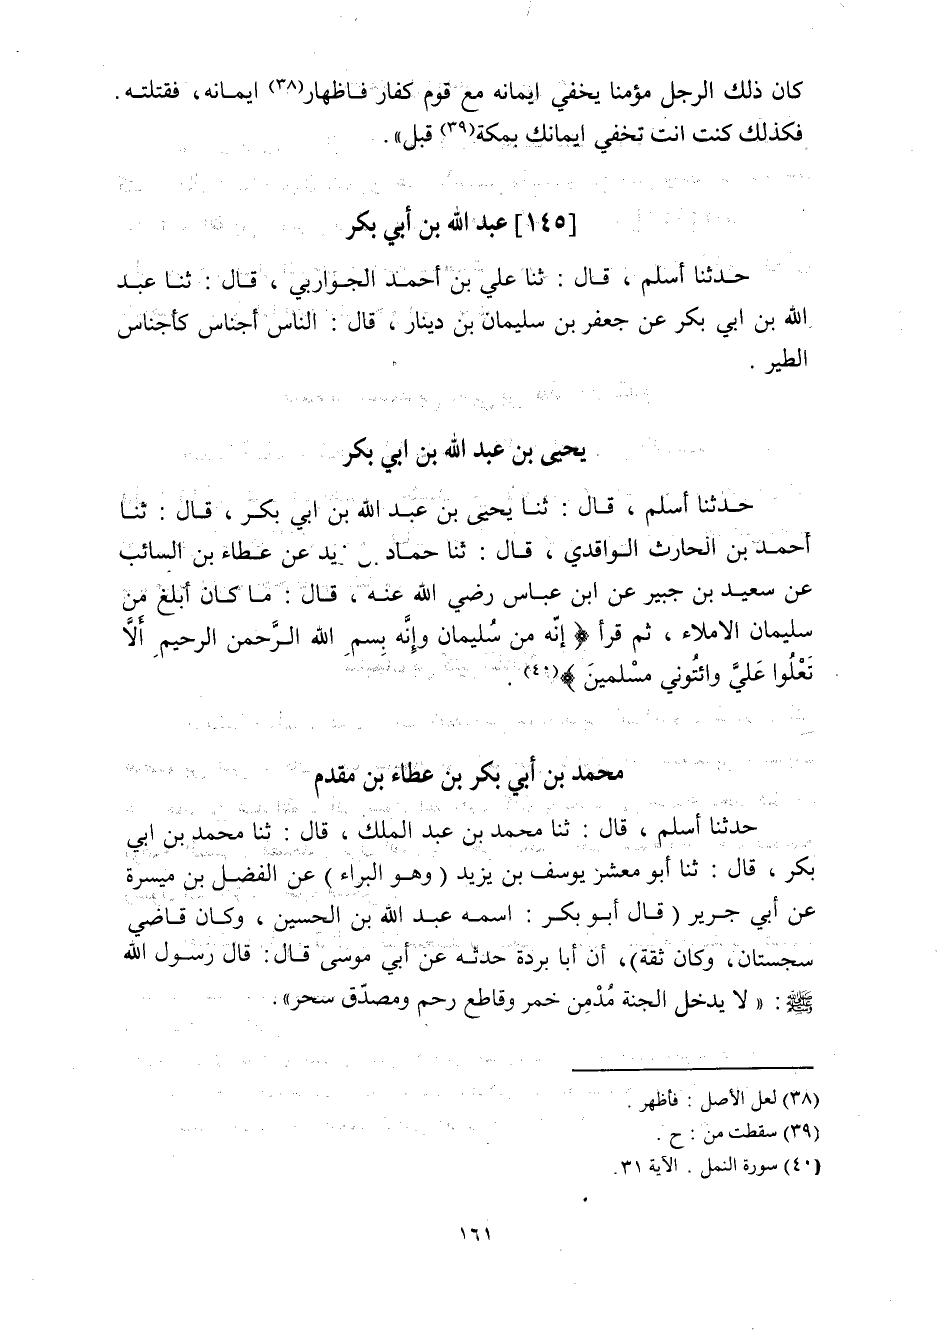 كان ذلك الرجل مؤمنا يخفي ايمانه مع قوم كفار فاظهار(٣٨) ايمانه، فقتلته.
فكذلك كنت انت تخفي ايمانك بمكة(٣٩) قبل».
[١٤٥] عبد الله بن أبي بكر
حدثنا أسلم ، قال : ثنا علي بن أحمد الجواربي ، قال : ثنا عبد
الله بن ابي بكر عن جعفر بن سليمان بن دينار ، قال : الناس أجناس كأجناس
الطير .
يحيى بن عبد الله بن ابي بكر
حدثنا أسلم ، قال : ثنا يحيى بن عبد الله بن ابي بكر ، قال : ثنا
أحمد بن الحارث الواقدي ، قال : ثنا حماد يد عن عطاء بن السائب
عن سعيد بن جبير عن ابن عباس رضي الله عنه ، قال : ما كان أبلغ من
سليمان الاملاء ، ثم قرأ ﴿ إنّه من سُليمان وإنَّه بِسم الله الرَّحمن الرحيم أَلَّا
تَعْلُوا عَليَّ وائتُوني مسْلمينَ ﴾(٤٠) .
محمد بن أبي بكر بن عطاء بن مقدم
حدثنا أسلم ، قال : ثنا محمد بن عبد الملك ، قال : ثنا محمد بن ابي
بكر ، قال : ثنا أبو معشر يوسف بن يزيد ( وهو البراء ) عن الفضل بن ميسرة
عن أبي جرير ( قال أبو بكر : اسمه عبد الله بن الحسين ، وكان قاضي
سجستان، وكان ثقة)، أن أبا بردة حدثه عن أبي موسى قال: قال رسول الله
ﷺ: « لا يدخل الجنة مُدْمِن خمر وقاطع رحم ومصدّق سحر».
(٣٨) لعل الأصل : فأظهر .
(٣٩) سقطت من : ح .
(٤٠) سورة النمل . الآية ٣١.
١٦١